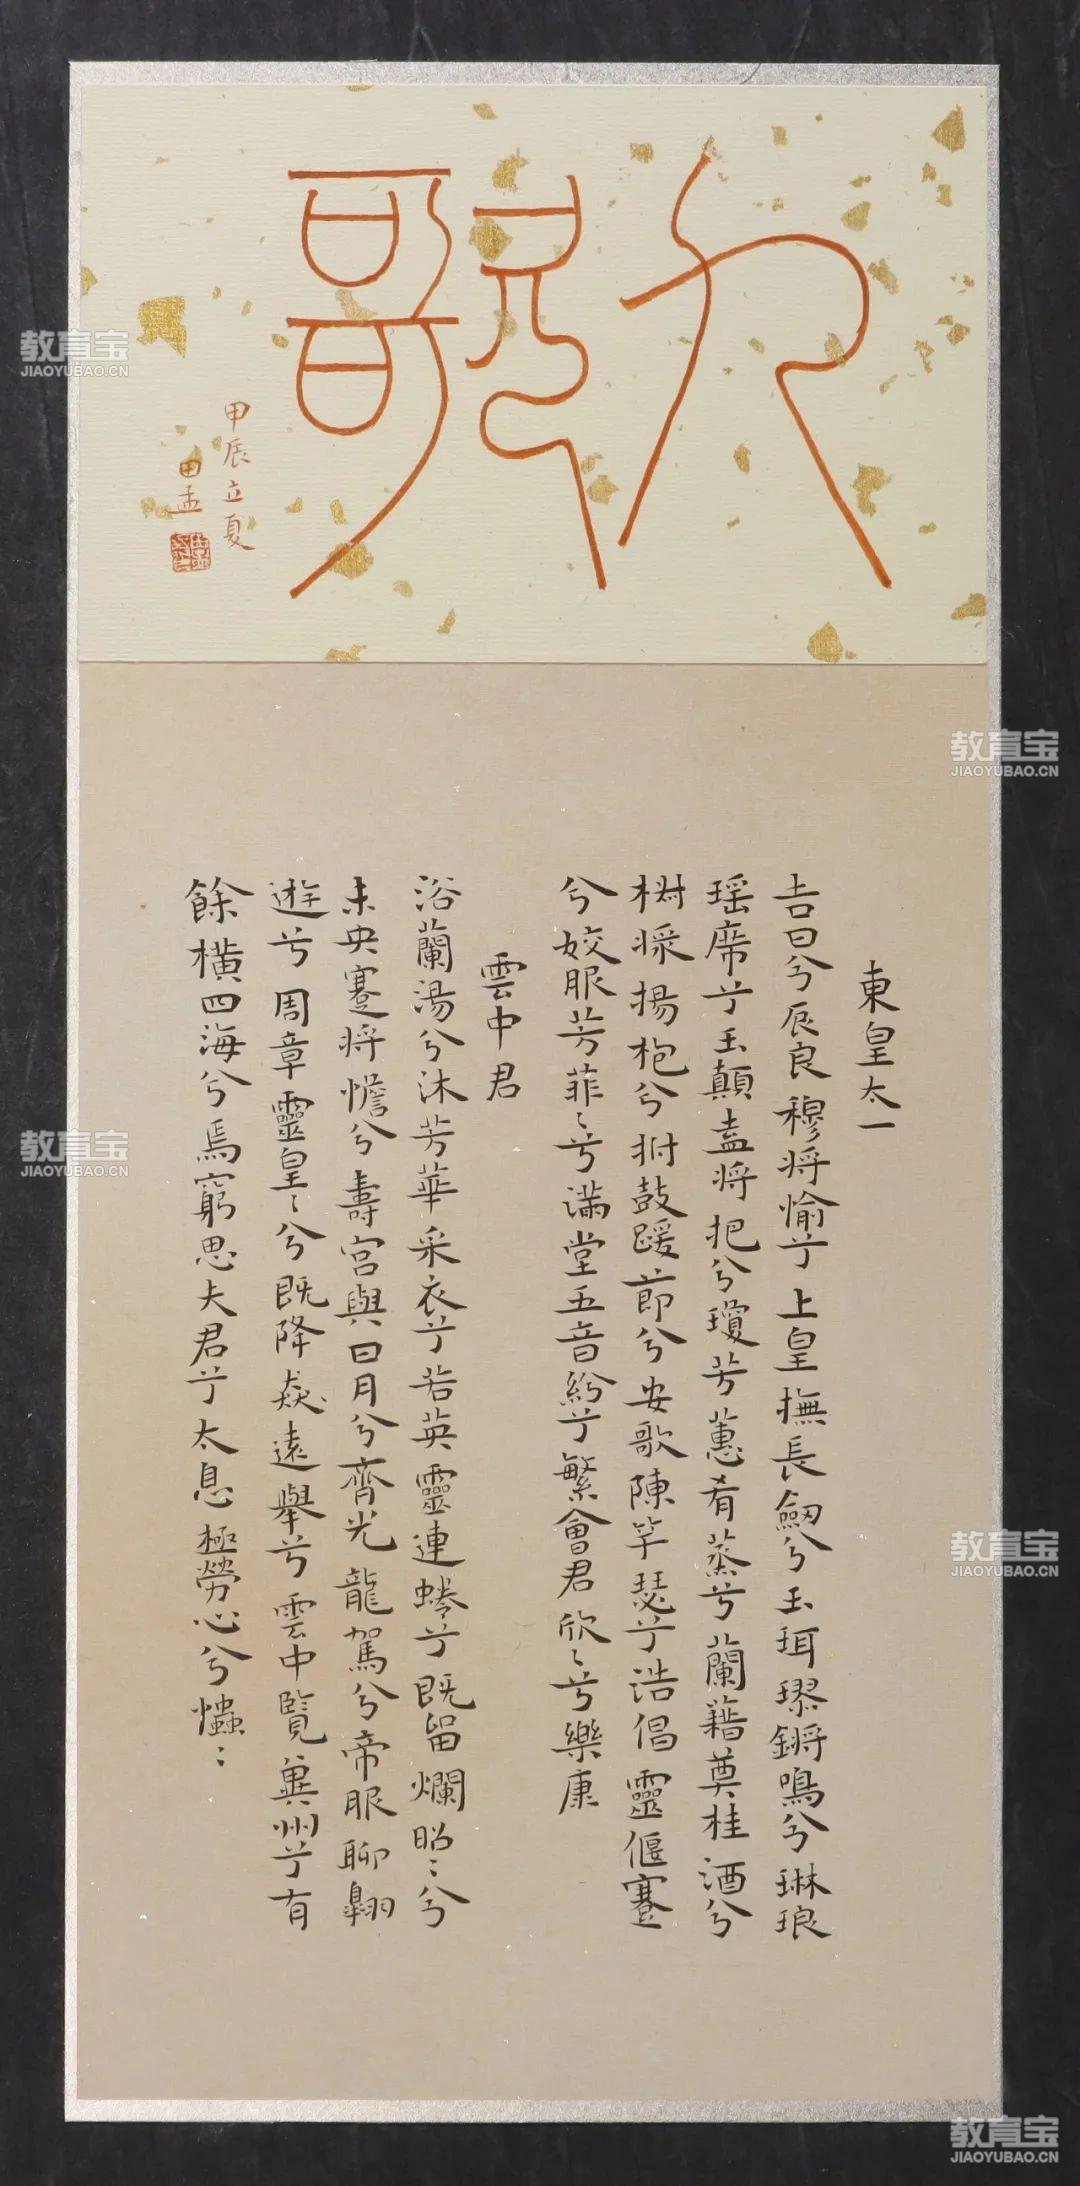 九歌
甲辰立夏
田孟
東皇太一
吉日兮辰良穆将愉兮上皇撫長劒兮玉珥璆鏘鳴兮琳琅
瑶席兮玉顛盍将把兮瓊芳蕙肴蒸兮蘭藉奠桂酒兮
椒漿揚枹兮拊鼓節兮安歌陳竽瑟兮浩倡靈偃蹇
兮姣服芳菲〻兮滿堂五音紛兮繁會君欣〻兮樂康
雲中君
浴蘭湯兮沐芳華采衣兮若英靈連蜷兮既留爛昭〻兮
未央蹇将憺兮壽宮與日月兮齊光龍駕兮帝服聊翱
遊兮周章靈皇〻兮既降猋遠舉兮雲中覽冀州兮有
餘橫四海兮焉窮思夫君兮太息極勞心兮𢥞〻
教育宝
JIAOYUBAO.CN
教育宝
JIAOYUBAO.CN
教育宝
JIAOYUBAO.CN
教育宝
JIAOYUBAO.CN
教育宝
JIAOYUBAO.CN